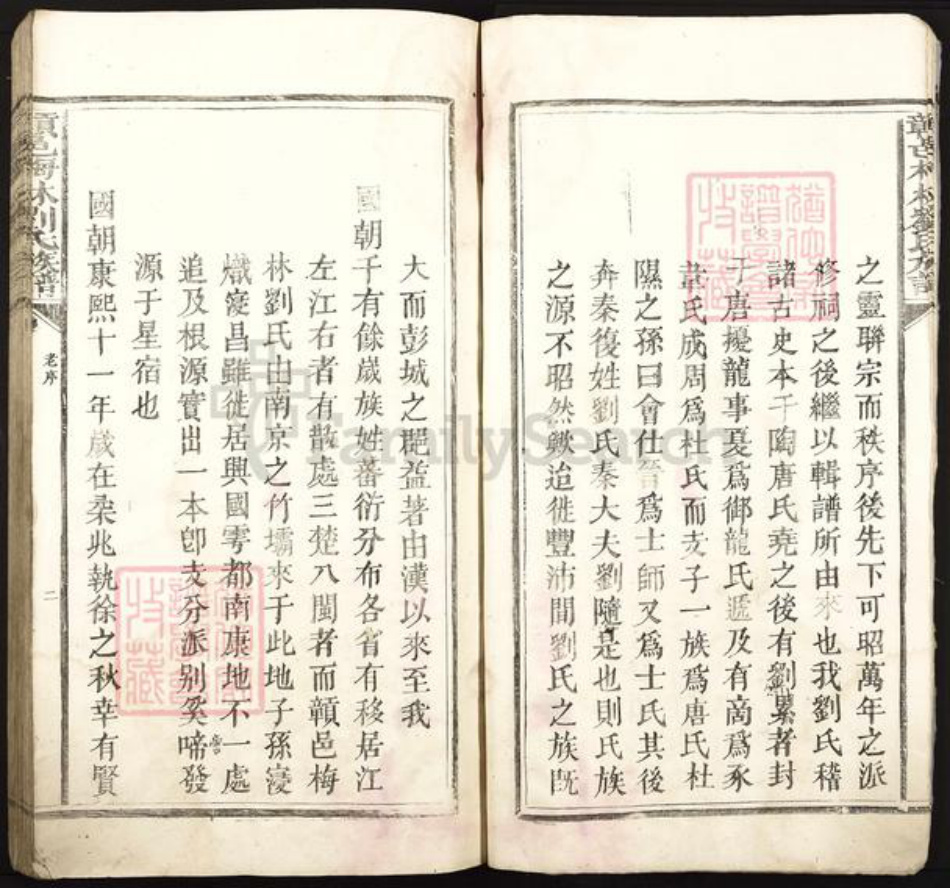 之靈聯宗而秩序後先下可昭萬年之派
修祠之後繼以輯譜所由來也我劉氏稽
諸古史本于陶唐氏堯之後有劉累者封
于唐擾龍事夏爲御龍氏遞及有商爲豕
韋氏成周爲杜氏而支子一族爲唐氏杜
隰之孫曰會仕晉爲士師又爲士氏其後
奔秦復姓劉氏秦大夫劉隨是也則氏族
之源不昭然歟迨徙豐沛間劉氏之族旣
大而彭城之郡益著由漢以來至我
國朝千有餘歲族姓蕃衍分布各省有移居江
左江右者有散處三楚八閩者而贑邑梅
林劉氏由南京之竹壩來于此地子孫寖
熾寖昌雖徙居興國雩都南康地不一處
追及根源實出一本卽支分派别奚啼發
源于星宿也
國朝康熙十一年歲在桒兆執徐之秋幸有賢
老序
二
劉氏族譜
FamilySearch